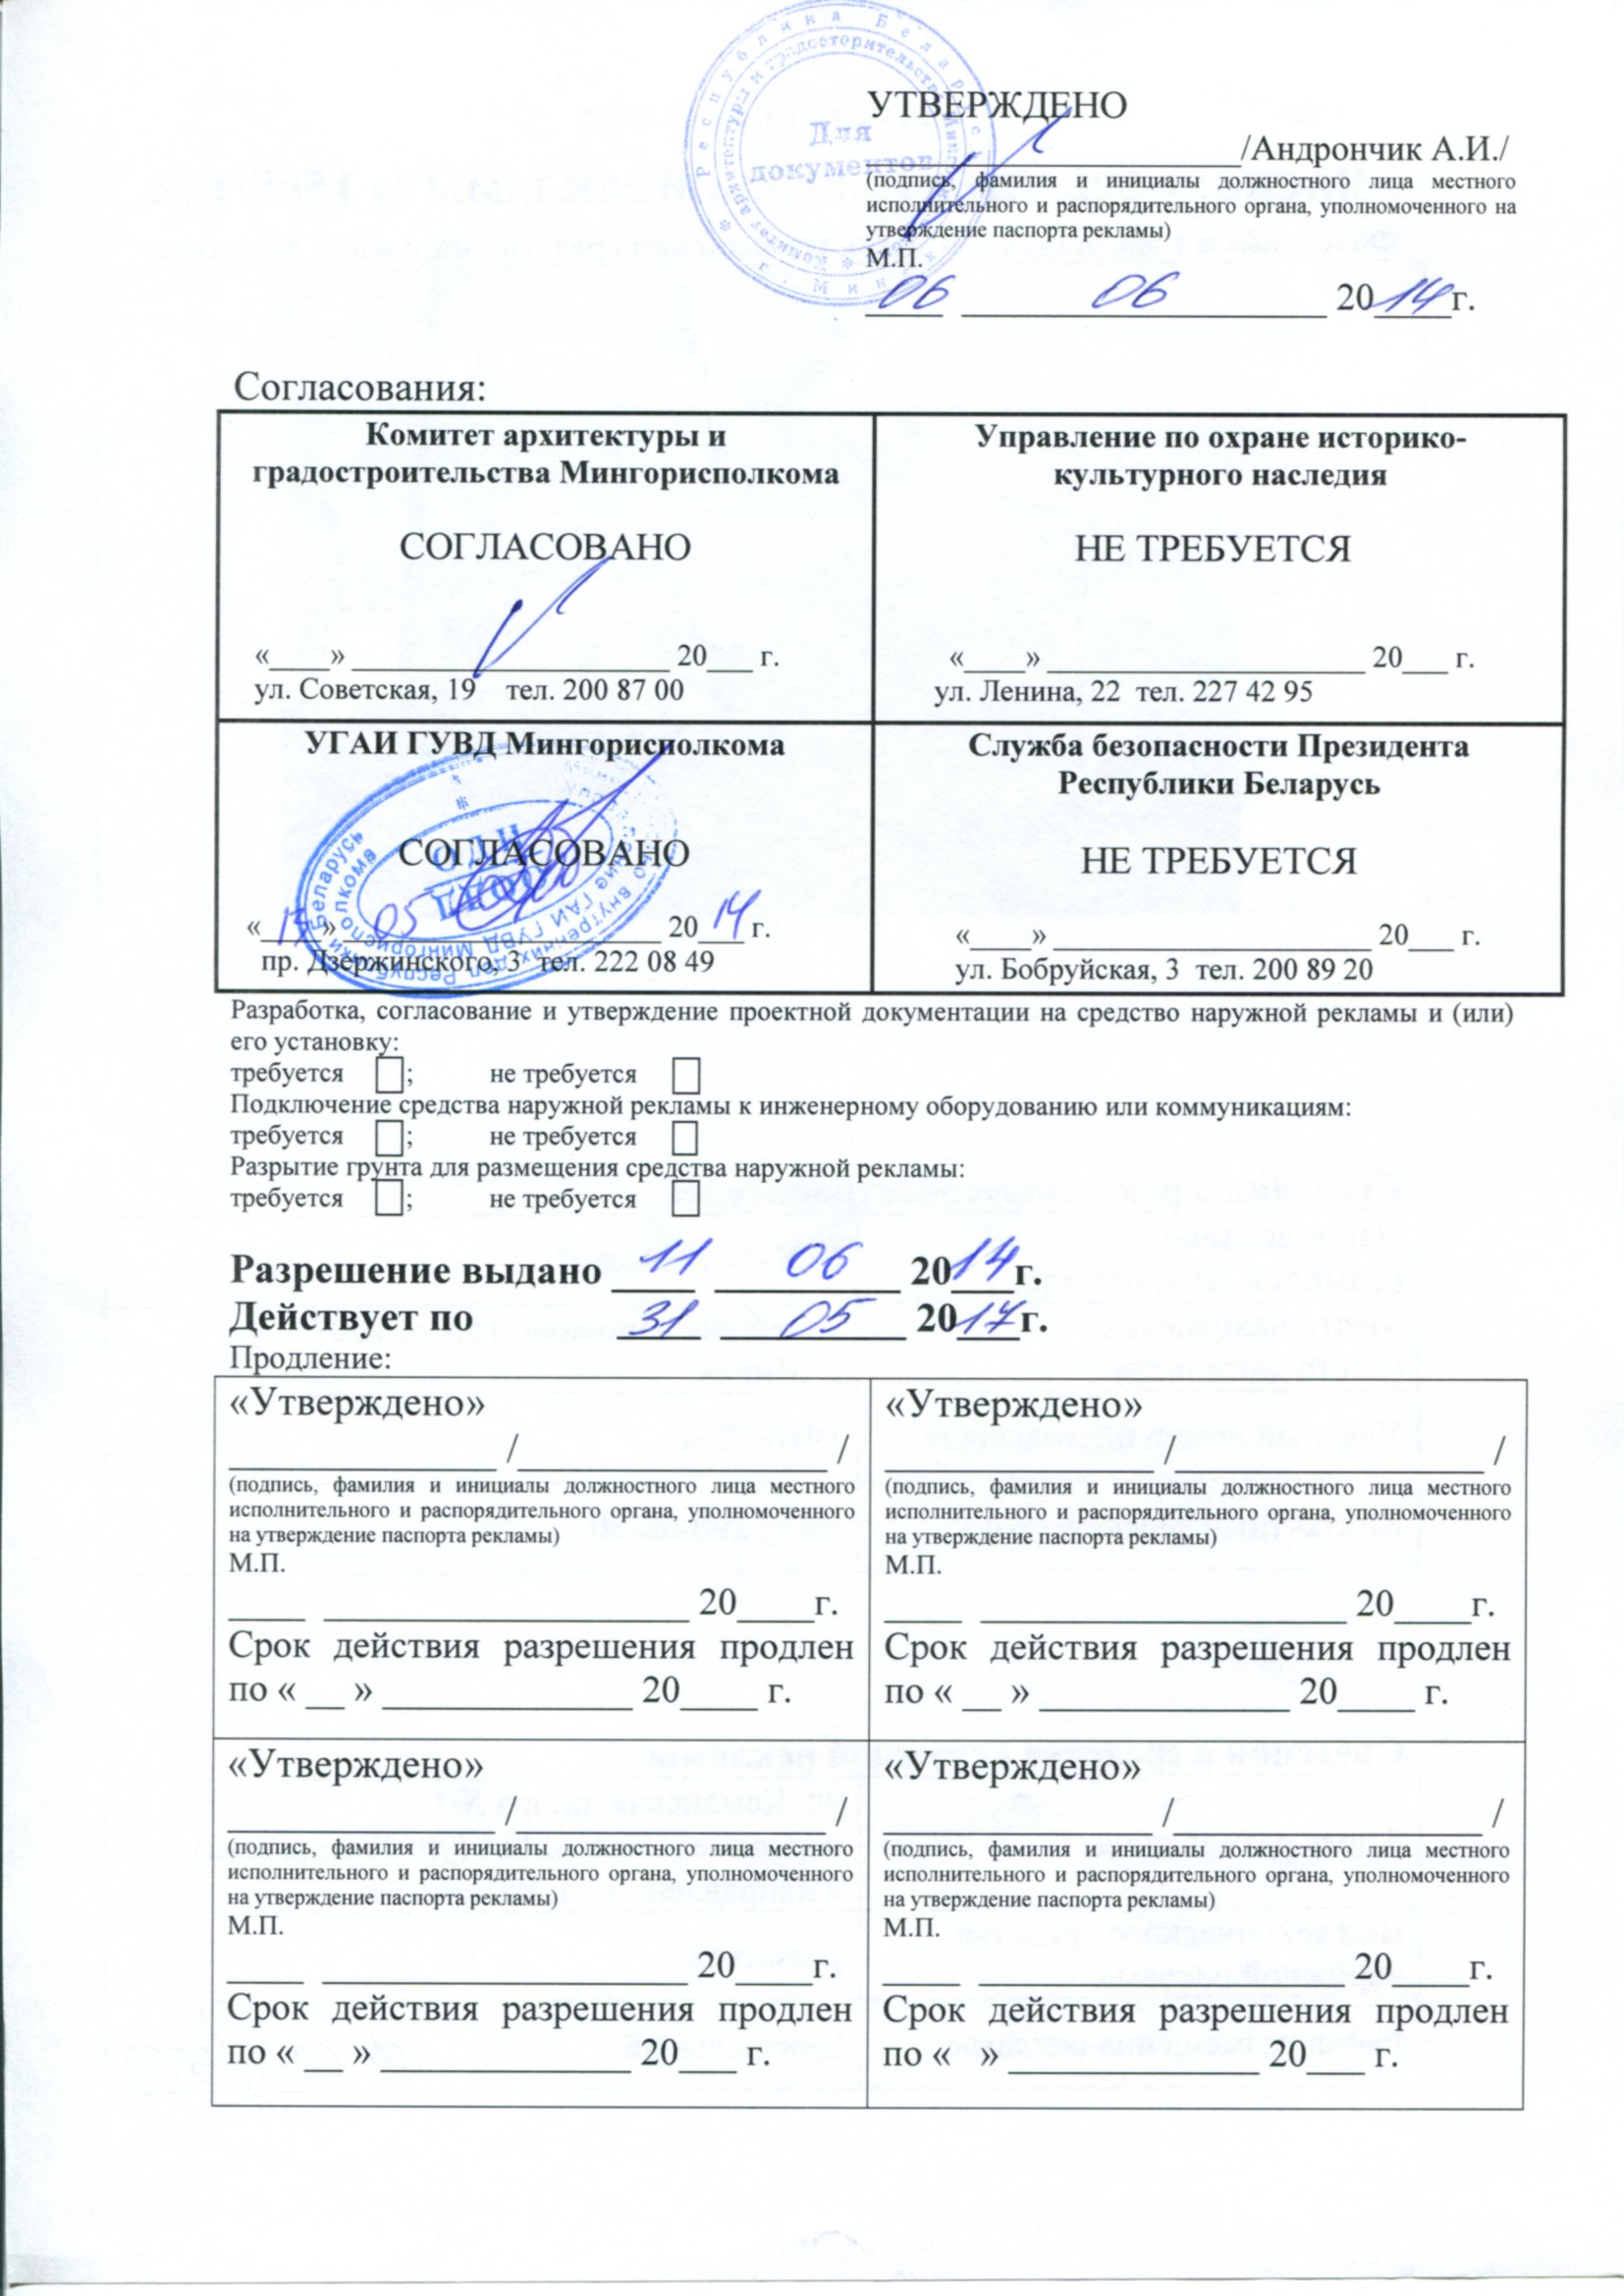 Республика Беларусь
Для
документов
УТВЕРЖДЕНО
/Андрончик А.И./
(подпись, фамилия и инициалы должностного лица местного
исполнительного и распорядительного органа, уполномоченного на
утверждение паспорта рекламы)
М.П.
06 06 2014г.
Согласования:
Комитет архитектуры и
градостроительства Мингорисполкома
СОГЛАСОВАНО
«____» ____________ 20___ г.
ул. Советская, 19 тел. 200 87 00
Управление по охране историко-
культурного наследия
НЕ ТРЕБУЕТСЯ
«____» ____________ 20___ г.
ул. Ленина, 22 тел. 227 42 95
УГАИ ГУВД Мингорисполкома
СОГЛАСОВАНО
« » 05 2014 г.
пр. Дзержинского, 3 тел. 222 08 49
Служба безопасности Президента
Республики Беларусь
НЕ ТРЕБУЕТСЯ
«____» ____________ 20___ г.
ул. Бобруйская, 3 тел. 200 89 20
Разработка, согласование и утверждение проектной документации на средство наружной рекламы и (или)
его установку:
требуется ; не требуется
Подключение средства наружной рекламы к инженерному оборудованию или коммуникациям:
требуется ; не требуется
Разрытие грунта для размещения средства наружной рекламы:
требуется ; не требуется
Разрешение выдано 11 06 2014г.
Действует по 31 05 2017г.
Продление:
«Утверждено»
____________ /____________ /
(подпись, фамилия и инициалы должностного лица местного
исполнительного и распорядительного органа, уполномоченного
на утверждение паспорта рекламы)
М.П.
____ ____________ 20____г.
Срок действия разрешения продлен
по « __ » ____________ 20____ г.
«Утверждено»
____________ /____________ /
(подпись, фамилия и инициалы должностного лица местного
исполнительного и распорядительного органа, уполномоченного
на утверждение паспорта рекламы)
М.П.
____ ____________ 20____г.
Срок действия разрешения продлен
по « __ » ____________ 20____ г.
«Утверждено»
____________ /____________ /
(подпись, фамилия и инициалы должностного лица местного
исполнительного и распорядительного органа, уполномоченного
на утверждение паспорта рекламы)
М.П.
____ ____________ 20____г.
Срок действия разрешения продлен
по « __ » ____________ 20___ г.
«Утверждено»
____________ /____________ /
(подпись, фамилия и инициалы должностного лица местного
исполнительного и распорядительного органа, уполномоченного
на утверждение паспорта рекламы)
М.П.
____ ____________ 20____г.
Срок действия разрешения продлен
по « » ____________ 20___ г.